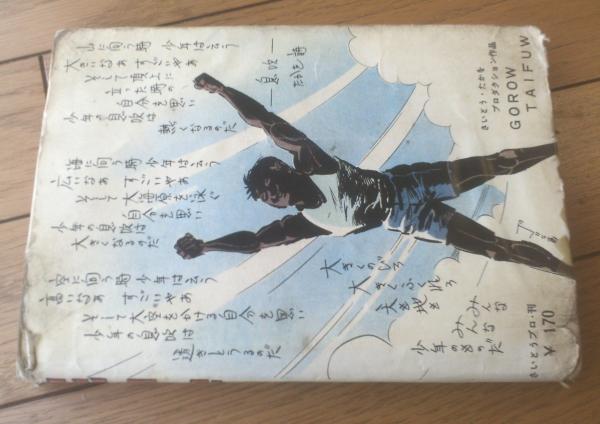 山に向う時 少年は云う
大きいなあ すごいやあ
そして頂上に
立った時の
自分を思い
少年の息吹は
熱くなるのだ
海に向う時 少年は云う
広いなあ すごいやあ
そして大海原を泳ぐ
自分を思い
少年の息吹は
大きくなるのだ
空に向う時 少年は云う
高いなあ すごいやあ
そして大空をかける自分を思い
少年の息吹は
―息吹―
大きくのびろ
大きくふくれろ
天も地も
みんなみんな
少年のものだ
さいとう・たかを
プロダクション作品
GOROW
TAIFUW
さいとうプロ・刊
¥170